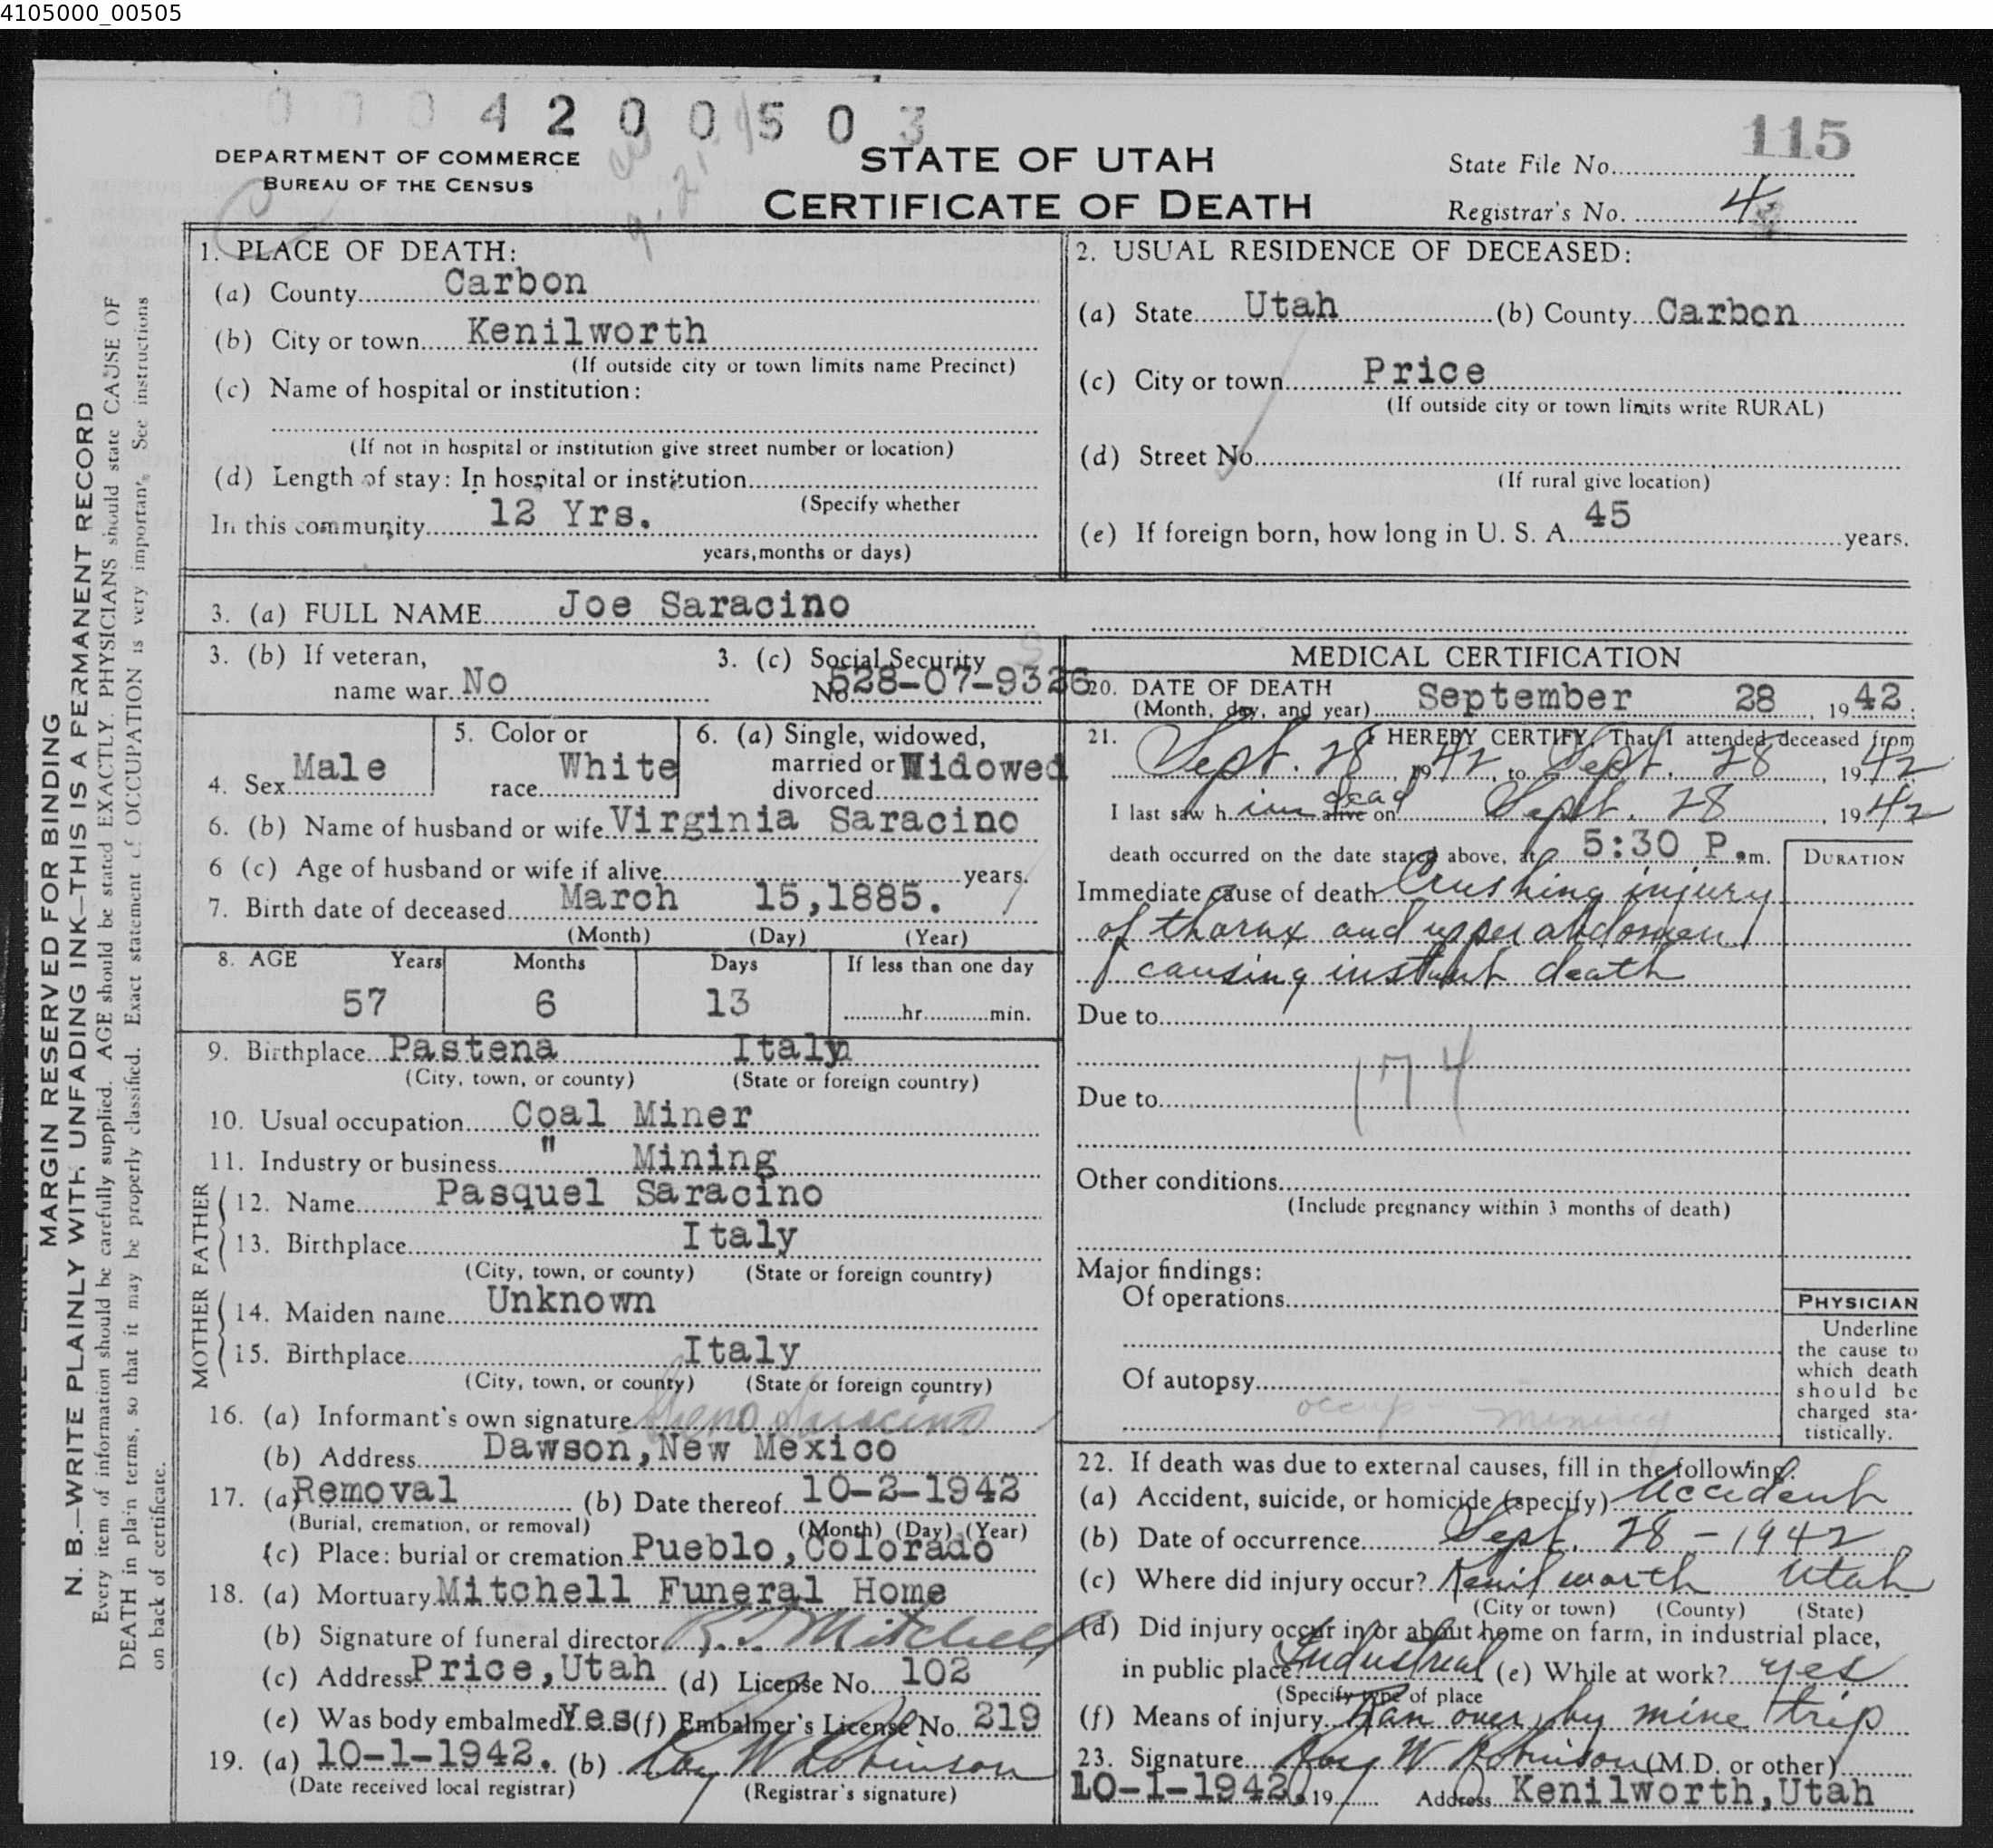 4105000_00505
0 0 0 4 2 0 0 5 0 3
115
DEPARTMENT OF COMMERCE
BUREAU OF THE CENSUS
STATE OF UTAH
CERTIFICATE OF DEATH
State File No.
Registrar's No. 4
MARGIN RESERVED FOR BINDING
N. B.—WRITE PLAINLY WITH UNFADING INK—THIS IS A PERMANENT RECORD
Every item of information should be carefully supplied. AGE should be stated EXACTLY. PHYSICIANS should state CAUSE OF
DEATH in plain terms, so that it may be properly classified. Exact statement of OCCUPATION is very important. See instructions
on back of certificate.
1. PLACE OF DEATH:
(a) County Carbon
(b) City or town Kenilworth
(If outside city or town limits name Precinct)
(c) Name of hospital or institution:
(If not in hospital or institution give street number or location)
(d) Length of stay: In hospital or institution
(Specify whether
In this community 12 Yrs.
years, months or days)
2. USUAL RESIDENCE OF DECEASED:
(a) State Utah (b) County Carbon
(c) City or town Price
(If outside city or town limits write RURAL)
(d) Street No.
(If rural give location)
(e) If foreign born, how long in U. S. A. 45 years.
3. (a) FULL NAME Joe Saracino
3. (b) If veteran,
name war No
3. (c) Social Security
No. 528-07-9326
4. Sex Male
5. Color or
race White
6. (a) Single, widowed,
married or
divorced Widowed
6. (b) Name of husband or wife Virginia Saracino
6 (c) Age of husband or wife if alive years.
7. Birth date of deceased March 15,1885.
(Month) (Day) (Year)
8. AGE Years Months Days If less than one day
57 6 13 hr. min.
9. Birthplace Pastena Italy
(City, town, or county) (State or foreign country)
10. Usual occupation Coal Miner
11. Industry or business " Mining
FATHER
12. Name Pasquel Saracino
13. Birthplace Italy
(City, town, or county) (State or foreign country)
MOTHER
14. Maiden name Unknown
15. Birthplace Italy
(City, town, or county) (State or foreign country)
16. (a) Informant's own signature Saracino
(b) Address Dawson,New Mexico
17. (a) Removal (b) Date thereof 10-2-1942
(Burial, cremation, or removal) (Month) (Day) (Year)
(c) Place: burial or cremation Pueblo,Colorado
18. (a) Mortuary Mitchell Funeral Home
(b) Signature of funeral director Mitchell
(c) Address Price,Utah (d) License No. 102
(e) Was body embalmed Yes (f) Embalmer's License No. 219
19. (a) 10-1-1942. (b) Roy W Robinson
(Date received local registrar) (Registrar's signature)
MEDICAL CERTIFICATION
20. DATE OF DEATH
(Month, day, and year) September 28, 1942.
21. I HEREBY CERTIFY, That I attended deceased from
Sept. 28, 1942, to Sept. 28, 1942
dead
I last saw him alive on Sept. 28, 1942
death occurred on the date stated above, at 5:30 P.m.
DURATION
Immediate cause of death Crushing injury
of thorax and upper abdomen
causing instant death
Due to
174
Due to
Other conditions
(Include pregnancy within 3 months of death)
Major findings:
Of operations
Of autopsy
occup - mining
PHYSICIAN
Underline
the cause to
which death
should be
charged sta-
tistically.
22. If death was due to external causes, fill in the following:
(a) Accident, suicide, or homicide (specify) Accident
(b) Date of occurrence Sept. 28 - 1942
(c) Where did injury occur? Kenilworth Utah
(City or town) (County) (State)
(d) Did injury occur in or about home on farm, in industrial place,
in public place? Industrial (e) While at work? yes
(Specify type of place
(f) Means of injury Ran over by mine trip
23. Signature Roy W Robinson (M.D. or other)
10-1-1942. 19 Address Kenilworth,Utah